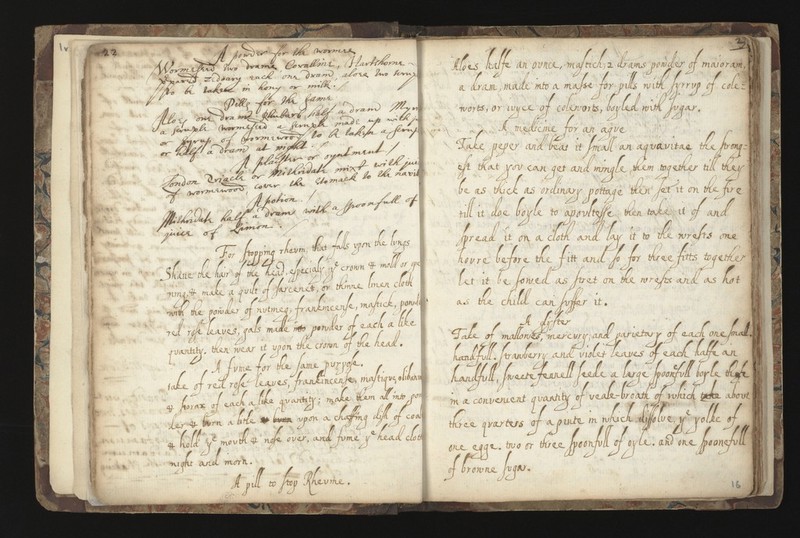 22
A powder for the wormes
Wormeseed two drams Corralline, Hartshorne
Zedoary each one dram, aloes two
to be taken in hony or milk.
Pills for the same
Aloes one dram Rhubarb half a dram
a scruple wormeseed a scruple made up with
or syrup of wormewood to be taken a scrup
or half a dram at night.
A plaister or oyntment
London Triacle or Mithridate mixt with jui
of wormewood cover the stomack to the navil
A potion
Mithridate half a dram with a spoonfull of
juice of Limon.
For stopping rheum that falls upon the lungs
Shave the hair of the head, especialy yᵉ crown & mold or ope
ning & make a quilt of sarcenet, or thinne linen cloth
with the powder of nutmeg, frankincense, mastick, powder
red rose leaves, gals made into powder of each a like
quantity. then wear it upon the crown of the head.
A fume for the same purpose.
take of red rose leaves, frankincense, mastique, olibanu
& borax of each a like quantity; make them all into pow
der & burn a litle upon a chaffing dish of coal
& hold yᵉ mouth & nose over, and fume yᵉ head cloth
night and morn.
A pill to stop Rheume.
Aloes halfe an ounce, mastich 2 drams powder of majoram
a dram, made into a masse for pills with syrrup of cole-
worts, or iuyce of coleworts, boyled with sugar.
A medicine for an ague
Take peper and beat it small an aquavitae the strong-
est that you can get and mingle them together till they
be as thick as ordinary pottage then set it on the fire
till it doe boyle to a poultesse then take it of and
spread it on a cloth and lay it to the wrests one
houre before the fitt and so for three fitts together
let it be sowed as stret on the wrests and as hot
as the child can suffer it.
A glister
Take of mallowes, mercury, and parietary of each one small
handfull. strawbery and violet leaves of each halfe an
handfull, sweete fennell seede a large spoonfull boyle these
in a convenient quantity of veale-broath of which take about
three quarters of a pinte in which dissolve yᵉ yolke of
one egge. two or three spoonfull of oyle. and one spoonefull
of browne sugar.
16